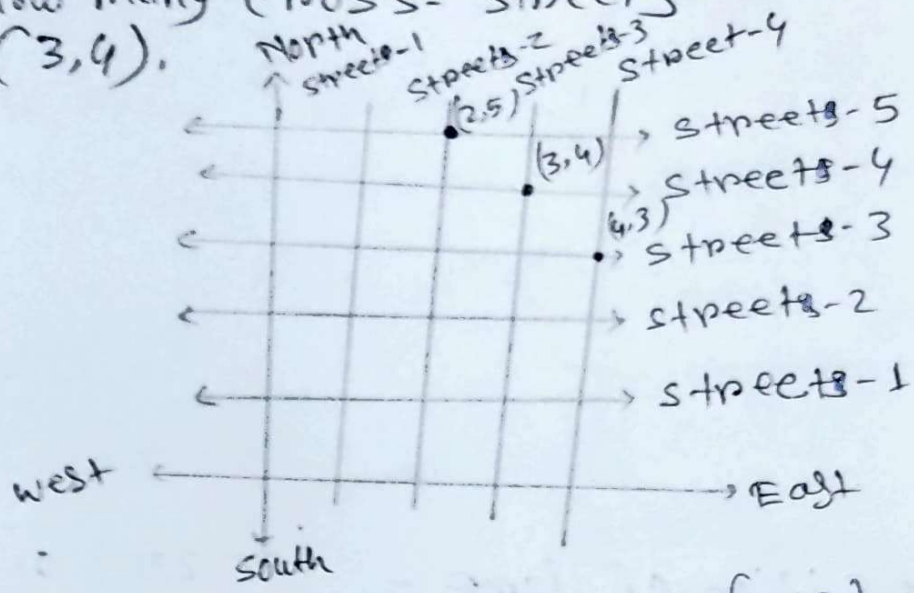 (3,4).
North
Streets-1
Streets-2
Streets-3
Street-4
(2,5)
Streets-5
(3,4)
Streets-4
(4,3)
Streets-3
Streets-2
Streets-1
West
East
South